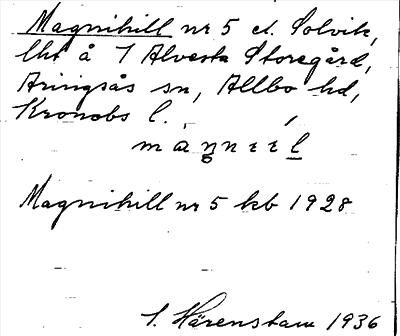 Magnihill nr 5 el. Solvik,
lht å 1 Alvesta Storegård,
Aringsås sn, Allbo hd,
Kronobs l.
Magnihill nr 5 kb 1928
S. Härenstam 1936